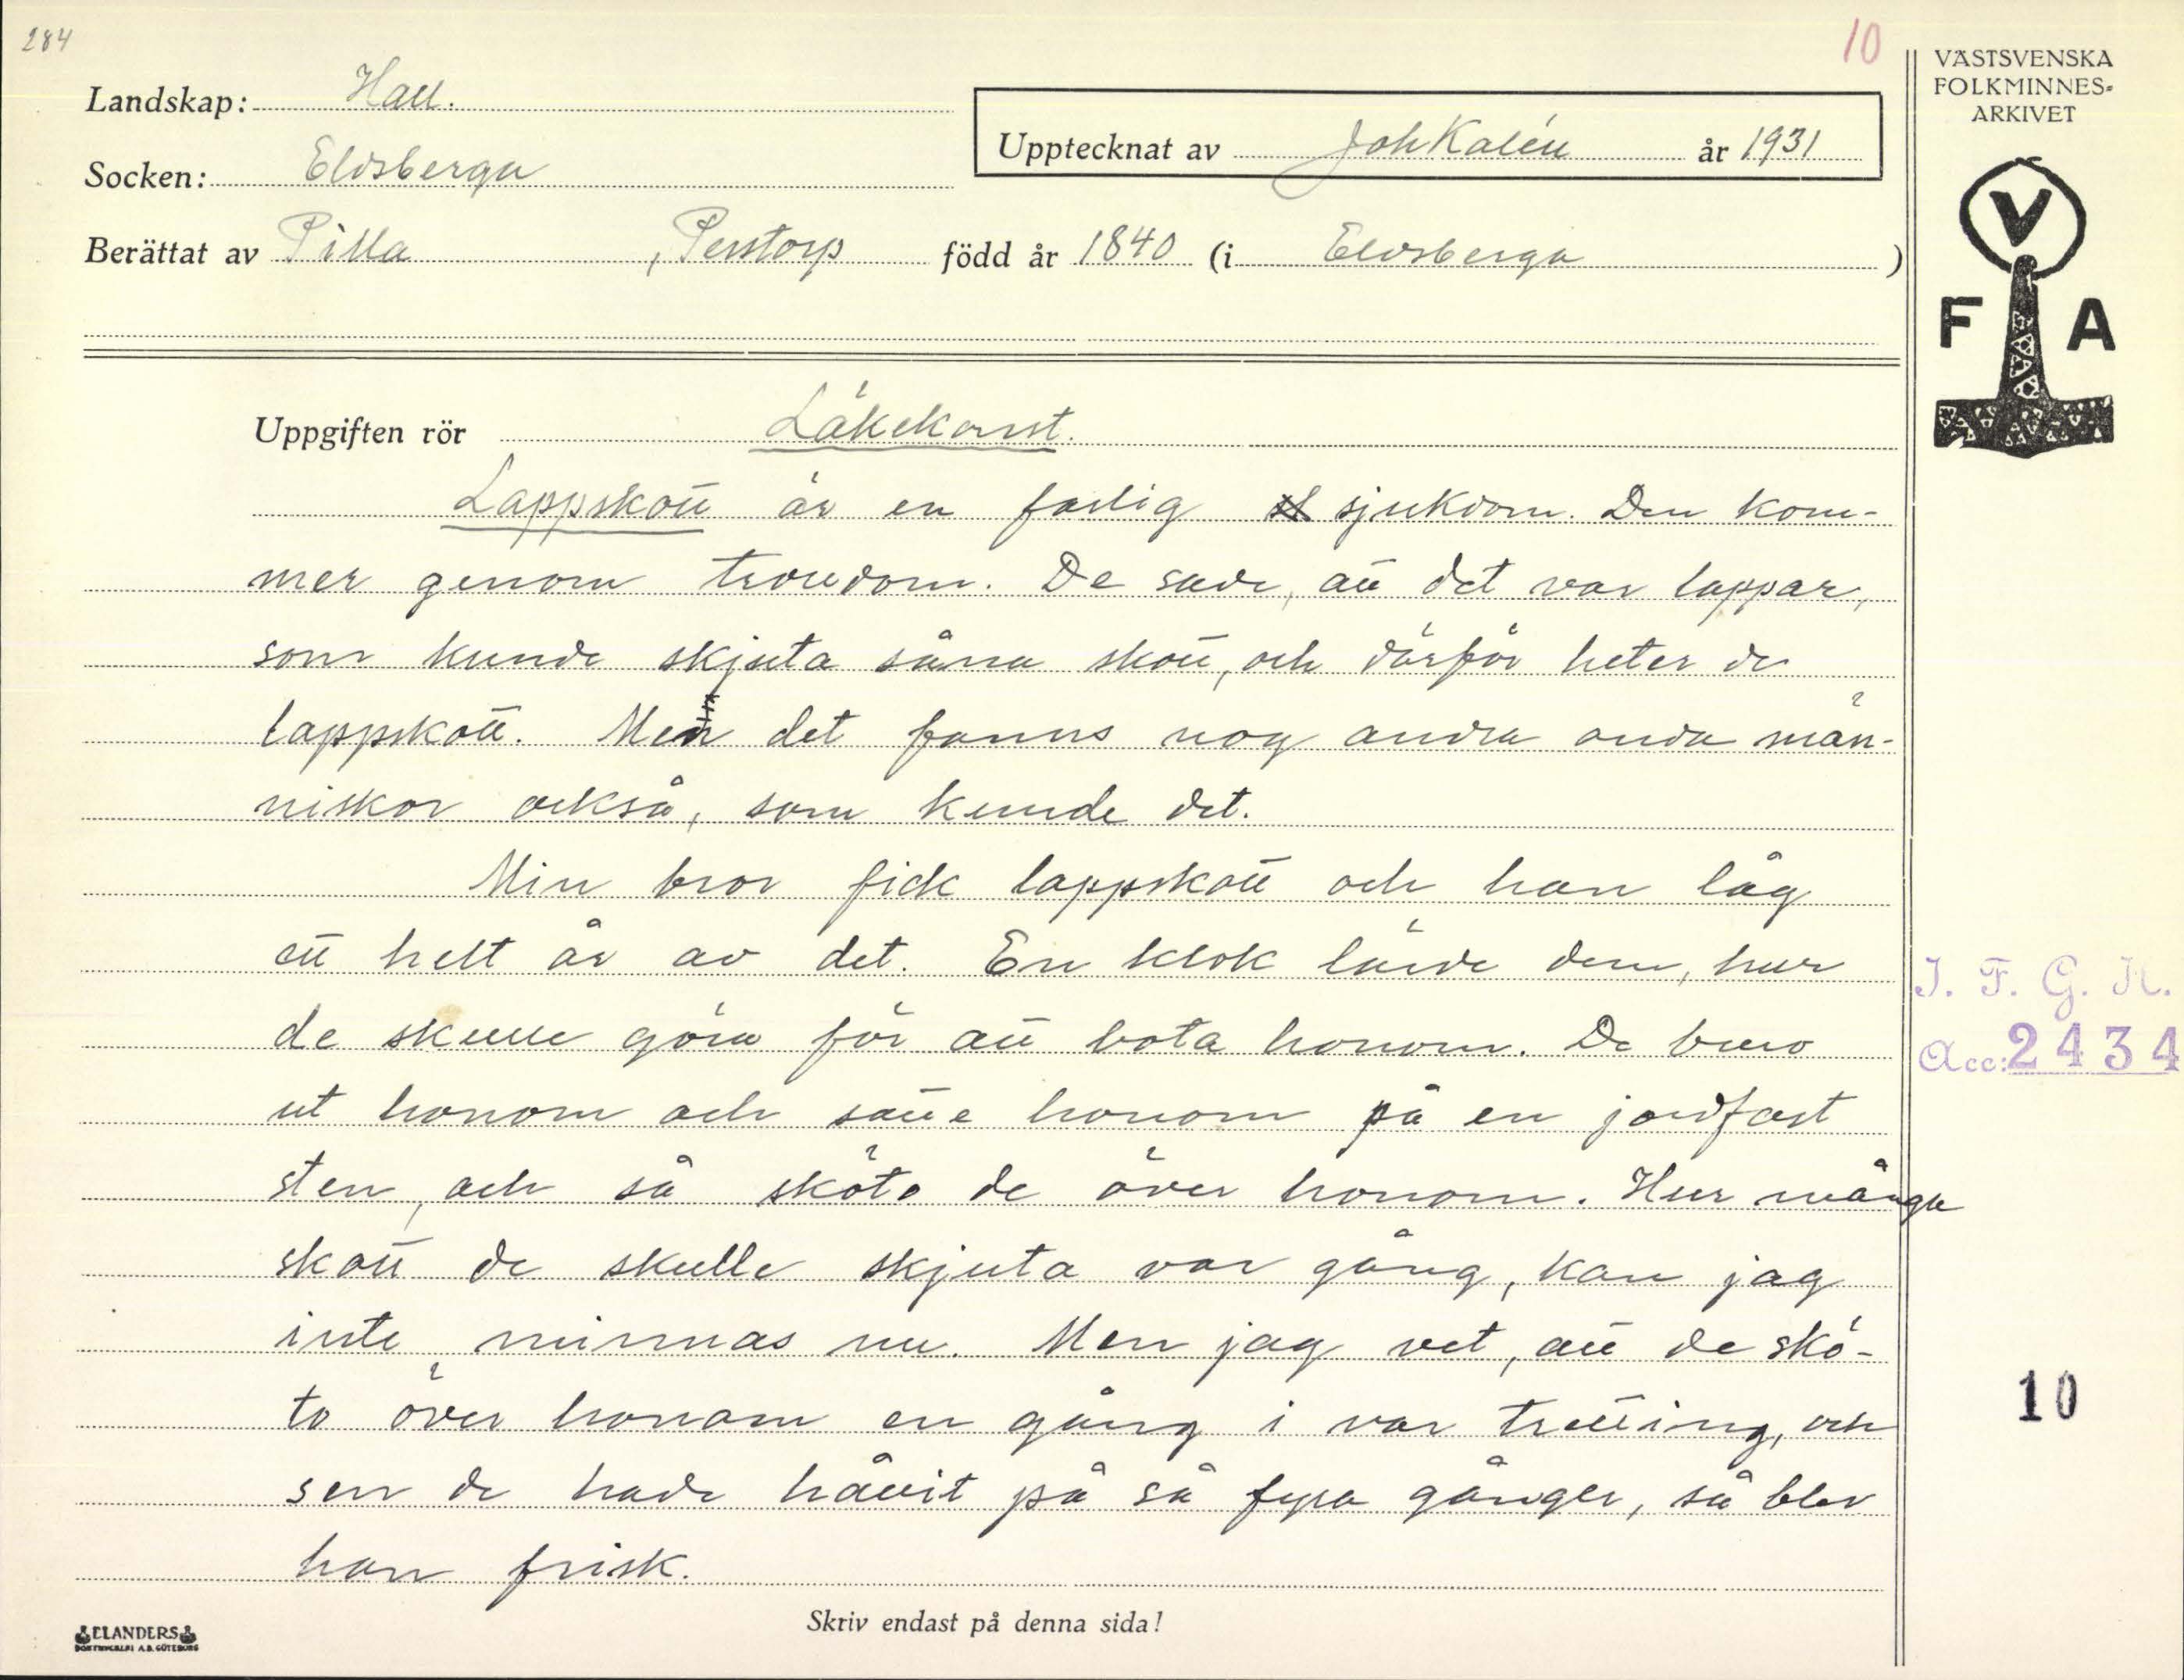 284
10
VÄSTSVENSKA
FOLKMINNES-
ARKIVET
Landskap: Hall.
Upptecknat av Joh Kalén år 1931
Socken: Eldsberga
Berättat av Pilla, Perstorp född år 1840 (i Eldsberga)
V
F A
Uppgiften rör Läkekonst.
Lappskott är en farlig sjukdom. Den kom-
mer genom trolldom. De sade, att det var lappar,
som kunde skjuta såna skott, och därför heter de
lappskott. Men det fanns nog andra onda män-
niskor också, som kunde det.
Min bror fick lappskott och han låg
ett helt år av det. En klok lärde dem, hur
de skulle göra för att bota honom. De buro
ut honom och satte honom på en jordfast
sten, och så sköto de över honom. Hur många
skott de skulle skjuta var gång, kan jag
inte minnas nu. Men jag vet, att de skö-
to över honom en gång i var tretting, och
sen de hade hållit på så fyra gånger, så blev
han frisk.
J. F. G. H.
Acc: 2434
10
Skriv endast på denna sida!
ELANDERS
BOKTRYCKERI A.B. GÖTEBORG